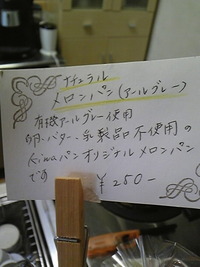 ナチュラル
メロンパン(アールグレー)
有機アールグレー使用
卵、バター、乳製品不使用の
Kiwaパンオリジナルメロンパン
です
¥250-